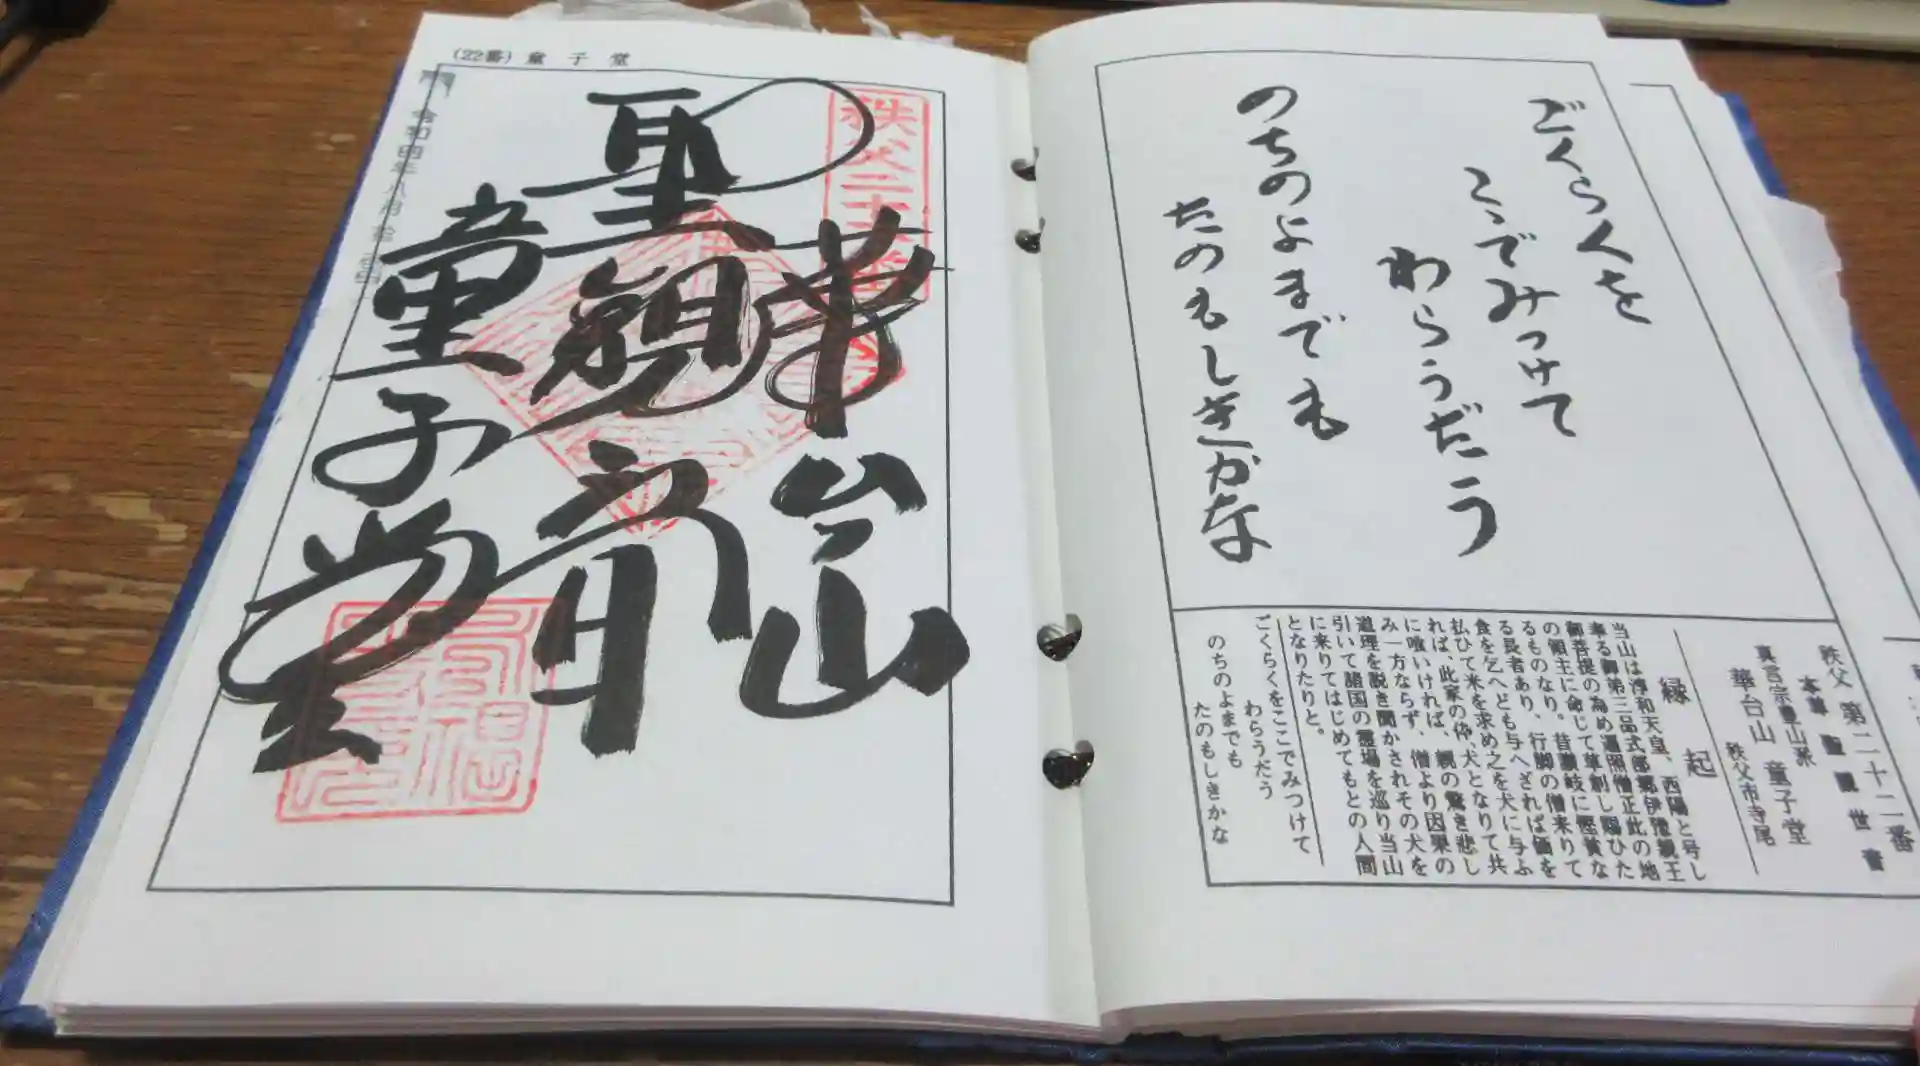 (22番) 童子堂
秩父二十二番
華台山
聖観音
童子堂
ごくらくを
こゝでみつけて
わらうだう
のちのよまでも
たのもしきかな
秩父 第二十二番
本尊 聖観世音
真言宗豊山派
華台山 童子堂
秩父市寺尾
縁起
当山は淳和天皇、西陽と号し
奉る御第三品式部卿伊豫親王
御菩提の為め遍照僧正此の地
の領主に命じて草創し賜ひた
るものなり。昔讃岐に慳貧な
る長者あり、行脚の僧来りて
食を乞へども与へざれば価を
払ひて米を求め之を犬に与ふ
れば、此家の伜、犬となりて共
に喰いければ、親の驚き悲し
み一方ならず、僧より因果の
道理を説き聞かされその犬を
引いて諸国の霊場を巡り当山
に来りてはじめてもとの人間
となりたりと。
ごくらくをここでみつけて
わらうだう
のちのよまでも
たのもしきかな